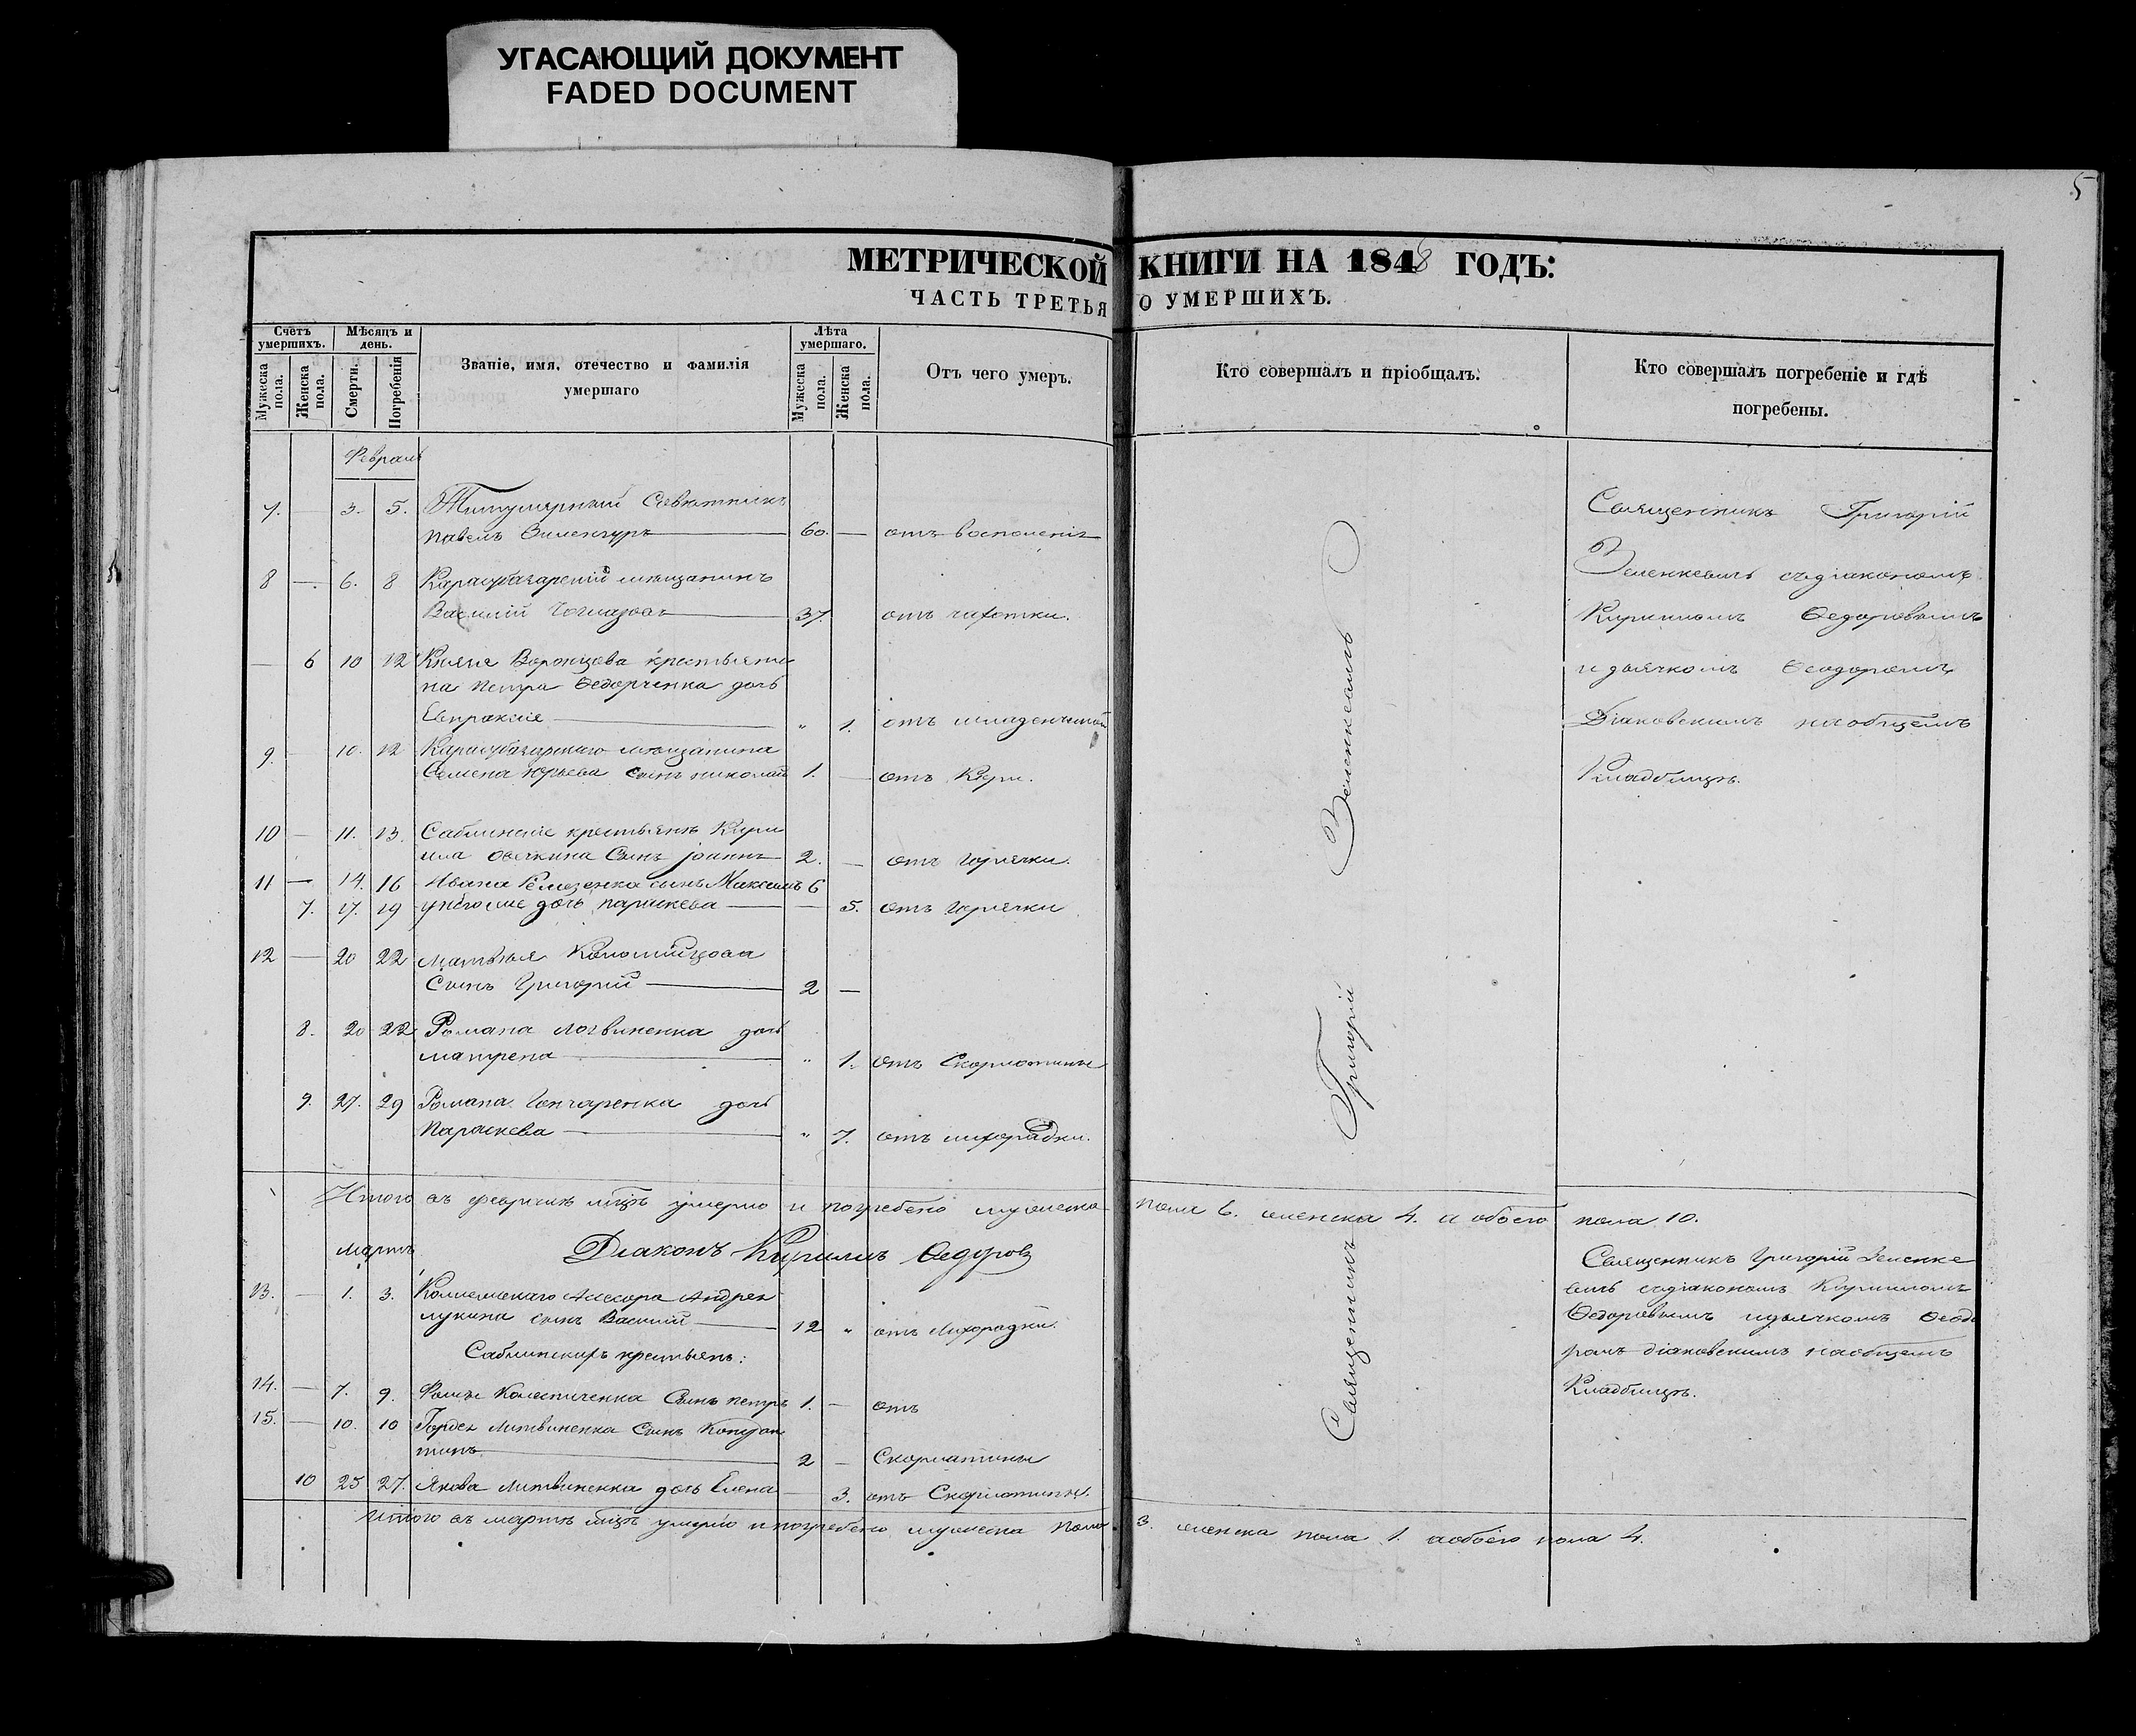 УГАСАЮЩИЙ ДОКУМЕНТ
FADED DOCUMENT
5
МЕТРИЧЕСКОЙ КНИГИ НА 1848 ГОДЪ:
ЧАСТЬ ТРЕТЬЯ О УМЕРШИХЪ.
Счетъ умершихъ.
Мужеска пола.
Женска пола.
Мѣсяцъ и день.
Смерти.
Погребенія
Званіе, имя, отечество и фамилія
умершаго
Лѣта умершаго.
Мужеска пола.
Женска пола.
Отъ чего умеръ.
Кто совершалъ и пріобщалъ.
Кто совершалъ погребеніе и гдѣ
погребены.
Февраль
7. — 3. 5. Титулярный Совѣтникъ
Павелъ 60. — отъ восполенія
8 — 6. 8 Карасубазарскій мѣщанинъ
Василій 37. отъ чахотки.
— 6 10 12 Князя Воронцова крестьяни
на Петра Ѳедорченка дочь
Евпраксія — " 1. отъ младенческой
9. — 10. 12 Карасубазарскаго мѣщанина
Семена Юрьева сынъ Николай 1. — отъ Кори.
10 — 11. 13. Саблинскіе крестьянъ Кири
ла Овечкина Сынъ Іоаннъ 2. — отъ горячки.
11 — 14. 16 Ивана Ремезенка сынъ Максимъ 6
7. 17. 19 у него же дочь Параскева — 5. отъ горячки
12 — 20 22 Матвѣя Коломійцова
Сынъ Григорій — 2 —
8. 20 22 Романа Логвиненка дочь
Матрена — " 1. отъ Скорлатины
9. 27. 29 Романа Гончаренка дочь
Параскева — " 7. отъ лихорадки.
Итого въ февралѣ мцѣ умерло и погребено мужеска пола 6. женска 4. и обоего пола 10.
Діаконъ Кириллъ Ѳедоровъ
Мартъ
13. — 1. 3. Коллежскаго Асесора Андрея
Лукина сынъ Василій — 12 " отъ Лихорадки.
Саблинскихъ крестьянъ:
14. — 7. 9. Фомы Колесниченка Сынъ Петръ 1. — отъ
15. — 10. 10 Гордея Литвиненка Сынъ
2 — Скорлатины
10 25 27. Якова Литвиненка дочь Елена — 3. отъ Скорлатины.
Итого въ мартѣ мцѣ умерло и погребено мужеска пола 3. женска пола 1. а обоего пола 4.
Священникъ Григорій Зеленкевичъ
Священникъ Григорій
Зеленкевичъ съ діакономъ
Кирилломъ Ѳедоровымъ
и дьячкомъ Ѳеодоромъ
Діаковскимъ на общемъ
Кладбищѣ.
Священникъ Григорій Зеленке
вичъ съ діакономъ Кирилломъ
Ѳедоровымъ и дьячкомъ Ѳеодо
ромъ Діаковскимъ на общемъ
Кладбищѣ.